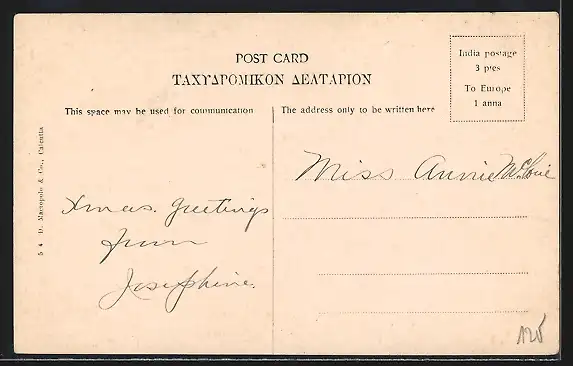 POST CARD
ΤΑΧΥΔΡΟΜΙΚΟΝ ΔΕΛΤΑΡΙΟΝ
India postage
3 pies
To Europe
1 anna
This space may be used for communication
The address only to be written here
54 D. Macropolo & Co., Calcutta
Xmas. Greetings
from
Josephine.
Miss Annie